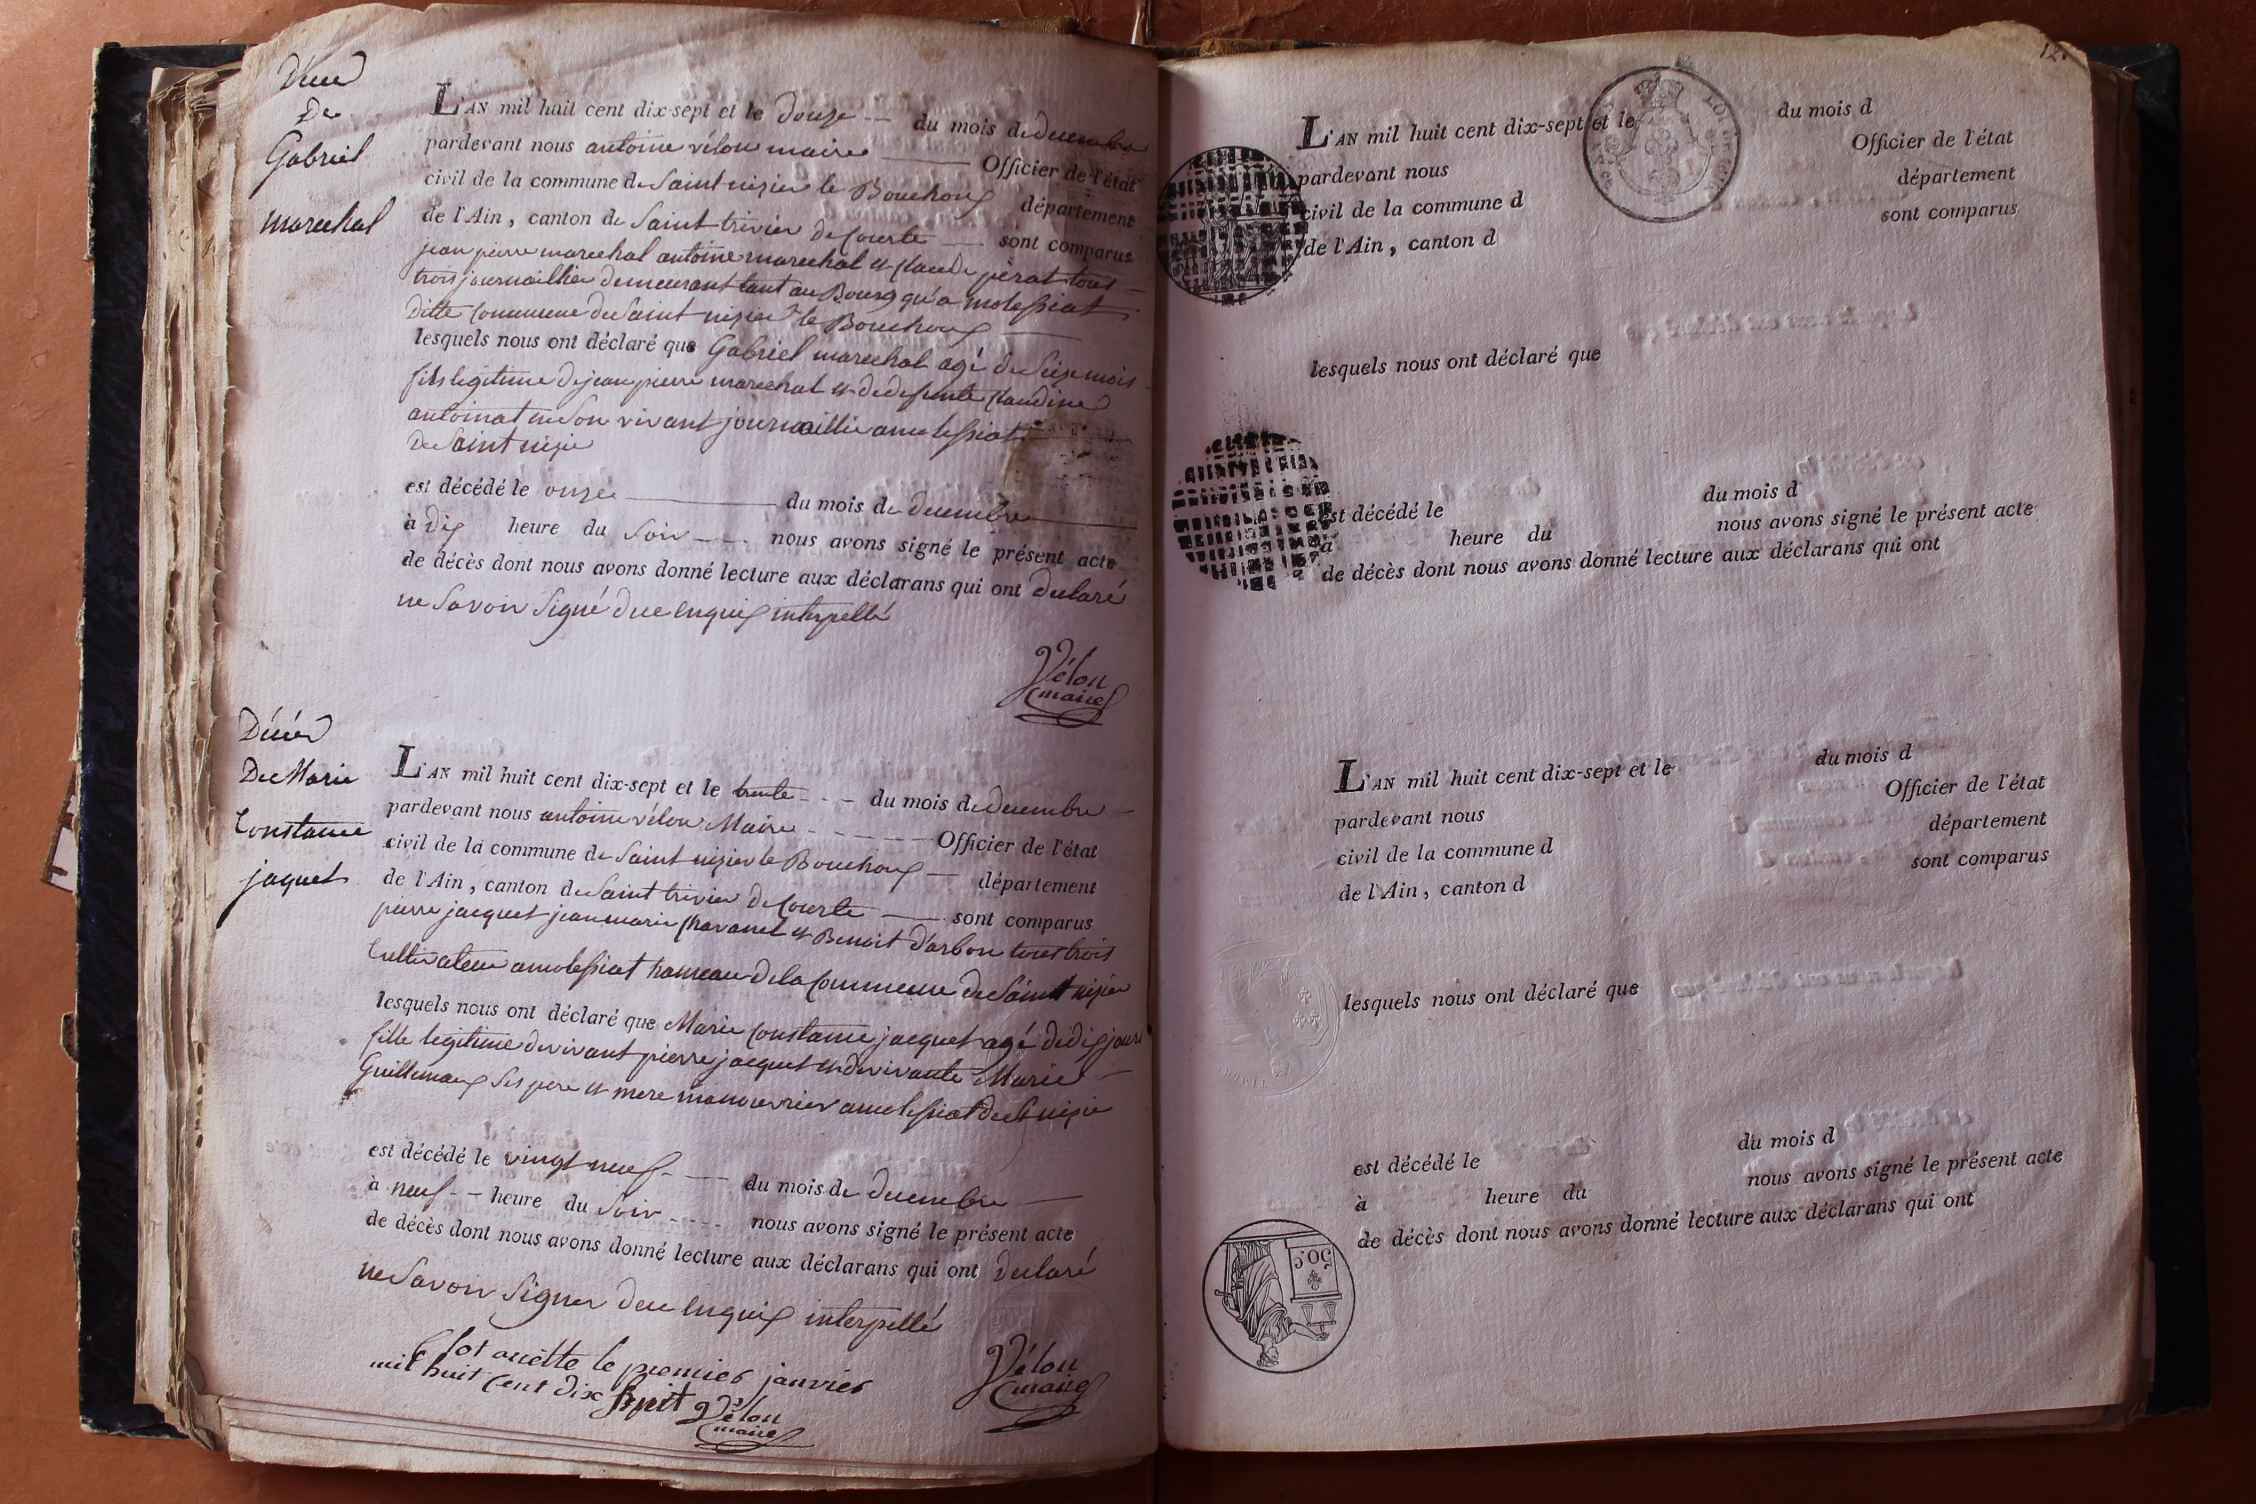 Décè
De
Gabriel
marechal
L'AN mil huit cent dix-sept et le douze du mois de decembre
pardevant nous antoine vélon maire Officier de l'état
civil de la commune de Saint nizier le Bouchoux département
de l'Ain, canton de Saint trivier de Courte sont comparus
jean pierre marechal antoine marechal et Claude pérat tous
trois journaillier demeurant tant au Bourg qu'a molessiat
ditte Commune de Saint nizier le Bouchoux
lesquels nous ont déclaré que Gabriel marechal agé de Seize mois
fils legitime de jean pierre marechal et de defunte Claudine
antoinat en son vivant journaillie a molessiat
de Saint nizie
est décédé le onze du mois de decembre
à dix heure du soir nous avons signé le présent acte
de décès dont nous avons donné lecture aux déclarans qui ont declaré
ne Savoir Signé de ce enquix interpellé
Vélon
maire
Décés
De Marie
Constance
jaquet
L'AN mil huit cent dix-sept et le trente du mois de decembre
pardevant nous antoine vélon Maire Officier de l'état
civil de la commune de Saint nizier le Bouchoux département
de l'Ain, canton de Saint trivier de Courte sont comparus
pierre jacquet jean marie Chavanel et Benoit d'arbon tous trois
Cultivateur a molessiat hameau de la Commune de Saint nizier
lesquels nous ont déclaré que Marie Constance jacquet agé de dix jours
fille legitime de vivant pierre jacquet et de vivante Marie
Guillemaux ses pere et mere manouvrier a molessiat de St nizie
est décédé le vingt neuf du mois de decembre
à neuf heure du soir nous avons signé le présent acte
de décès dont nous avons donné lecture aux déclarans qui ont declaré
ne Savoir Signer de ce enquix interpellé
Clot arrètte le premier janvier
mil huit Cent dix huit Vélon
maire
Vélon
maire
12.
L'AN mil huit cent dix-sept et le du mois d
pardevant nous Officier de l'état
civil de la commune d département
de l'Ain, canton d sont comparus
lesquels nous ont déclaré que
est décédé le du mois d
à heure du nous avons signé le présent acte
de décès dont nous avons donné lecture aux déclarans qui ont
L'AN mil huit cent dix-sept et le du mois d
pardevant nous Officier de l'état
civil de la commune d département
de l'Ain, canton d sont comparus
lesquels nous ont déclaré que
est décédé le du mois d
à heure du nous avons signé le présent acte
de décès dont nous avons donné lecture aux déclarans qui ont
50 c